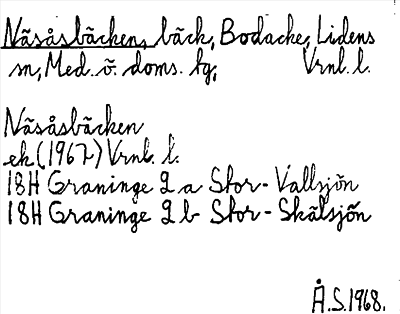 Näsåsbäcken, bäck, Bodacke, Lidens
sn, Med. v. doms. tg, Vrnl. l.
Näsåsbäcken
ek (1967) Vrnl. l.
18H Graninge 2 a Stor-Vallsjön
18H Graninge 2 b Stor-Skälsjön
Å.S. 1968.